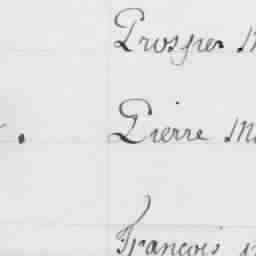 Prosper
Pierre
François